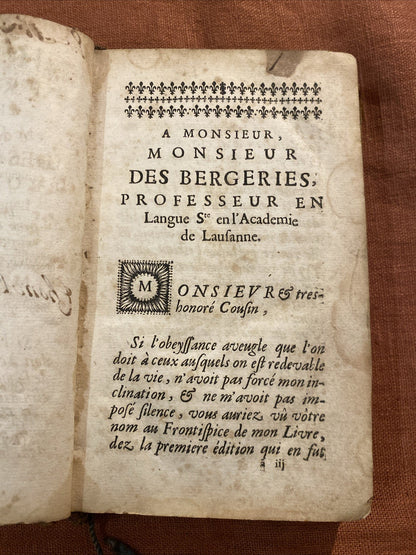 A MONSIEUR,
MONSIEUR
DES BERGERIES,
PROFESSEUR EN
Langue Ste en l'Academie
de Lauſanne.
MONSIEVR & tres-
honoré Couſin,
Si l'obeyſſance aveugle que l'on
doit à ceux auſquels on eſt redevable
de la vie, n'avoit pas forcé mon in-
clination, & ne m'avoit pas im-
poſé ſilence, vous auriez vû vôtre
nom au Frontiſpice de mon Livre,
dez la premiere édition qui en fut
à iij